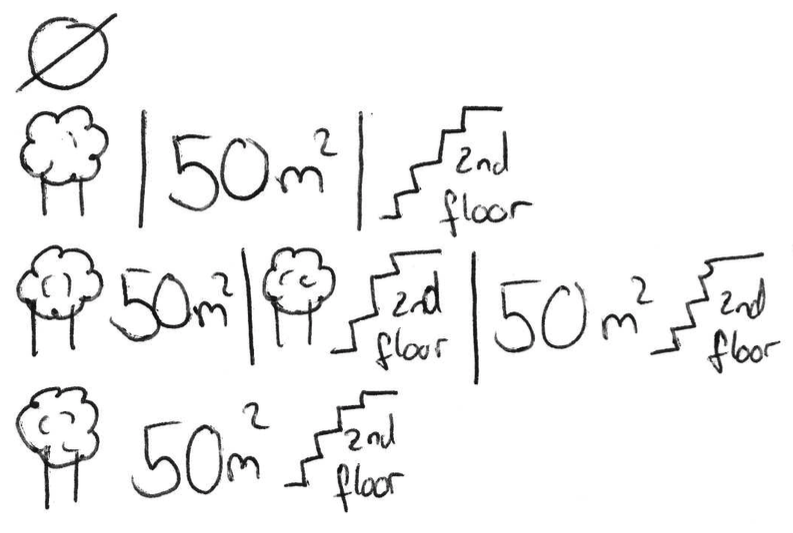 Ø
| 50 m² | 2nd floor
50 m² | 2nd floor | 50 m² 2nd floor
50 m² 2nd floor